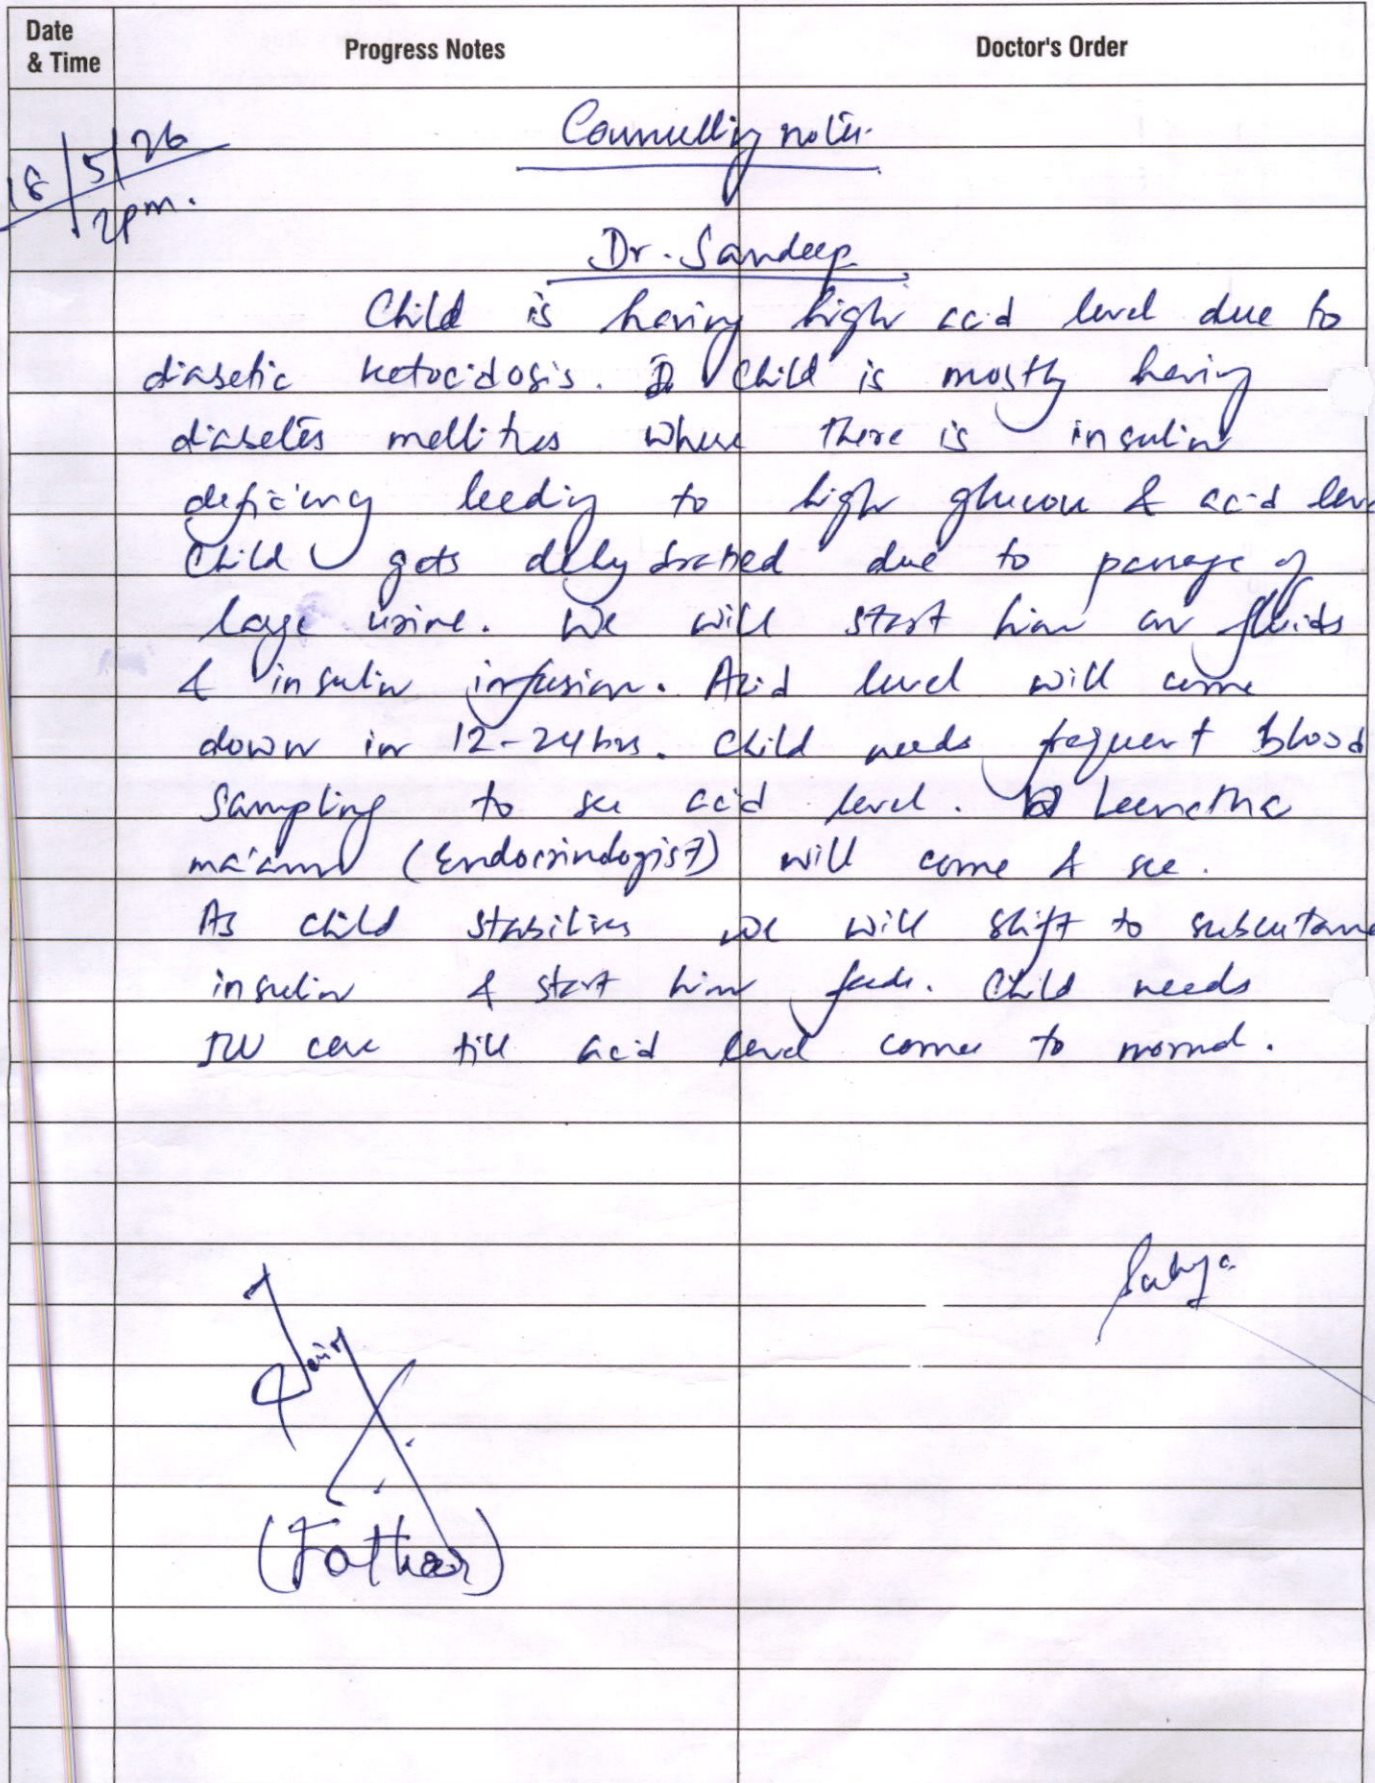 Date
& Time
Progress Notes
Doctor's Order
18/5/26
2pm.
Counselling notes.
Dr. Sandeep
Child is having high acid level due to
diabetic ketocidosis. Child is mostly having
diabetes mellitus where there is insulin
deficiency leeding to high glucose & acid leve
Child gets dehydrated due to passage of
large urine. We will start him on fluids
& insulin infusion. Acid level will come
down in 12-24 hrs. Child needs frequent blood
sampling to see acid level.
ma'am (Endocrindogist) will come & see.
As child stabilises we will shift to subcutane
insulin & start him feeds. Child needs
ICU care till acid level comes to normal.
(Father)